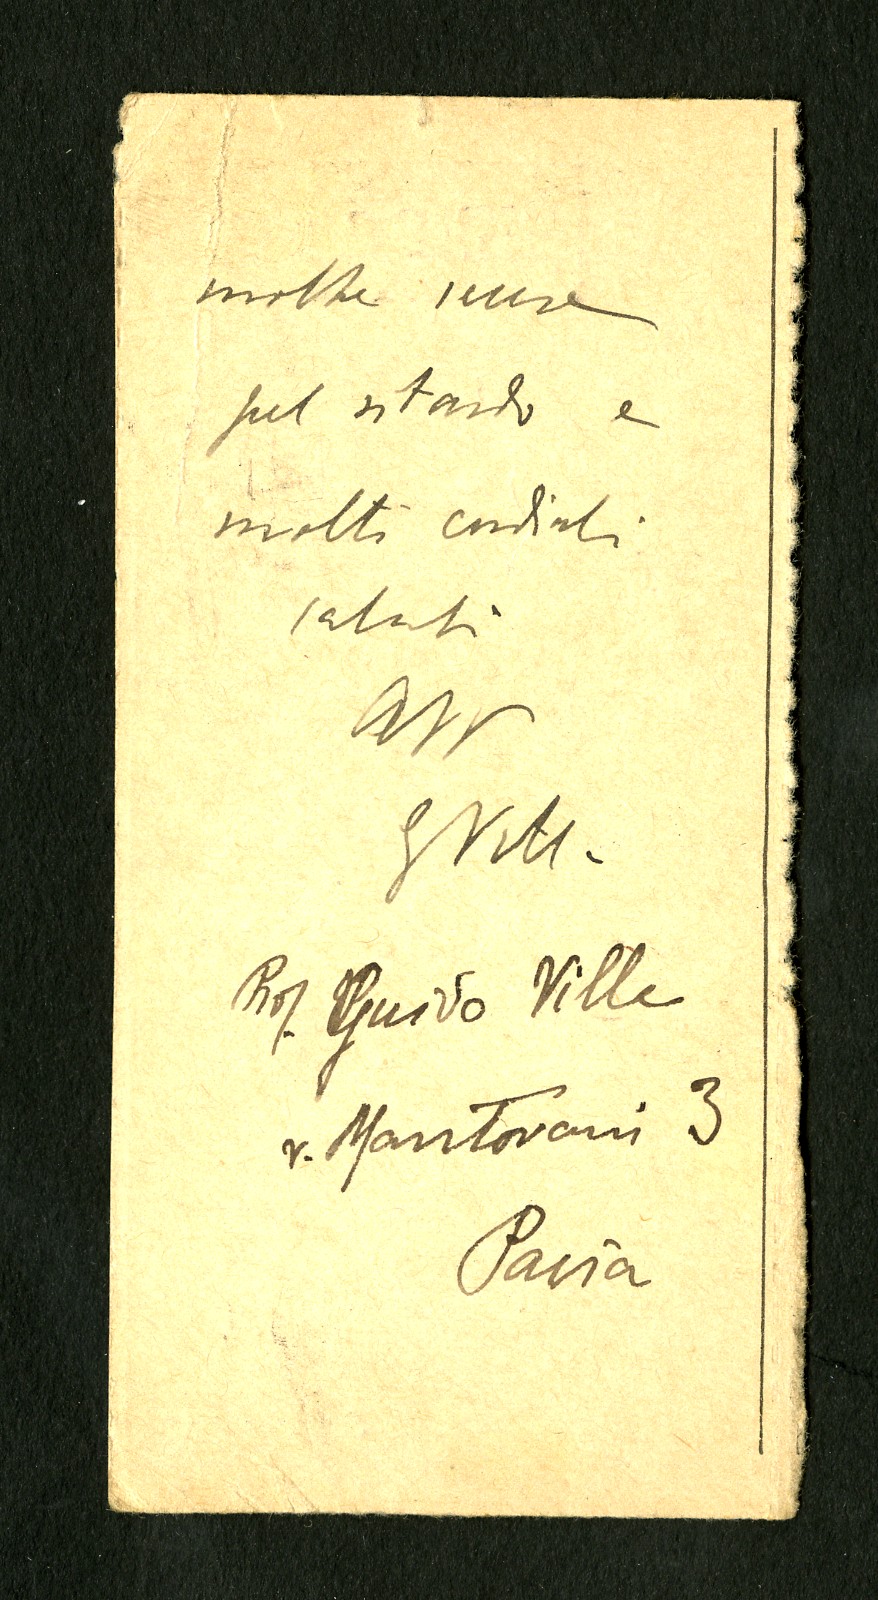 molte scuse
pel ritardo e
molti cordiali
saluti
aff
G Vill.
Prof. Guido Villa
v. Mantovani 3
Pavia